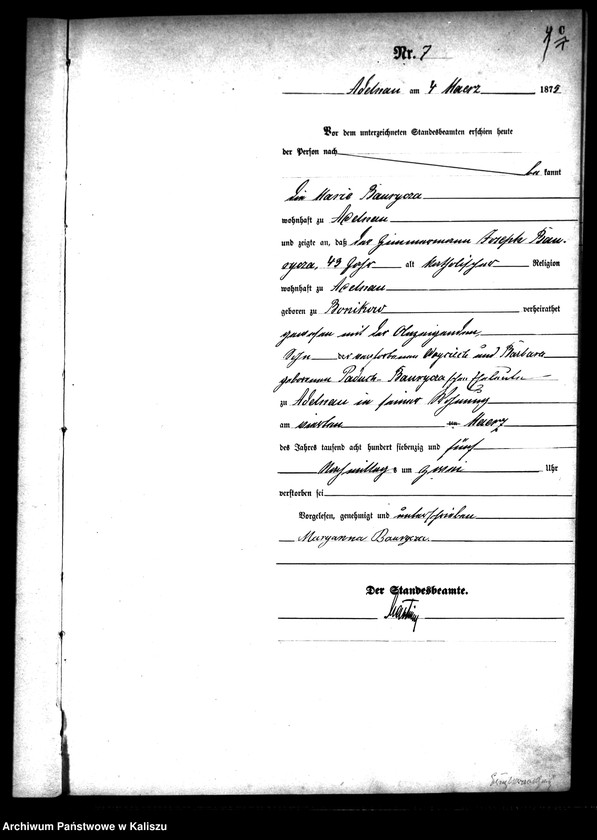 Nr. 7
Adelnau am 4 Maerz 1875
Vor dem unterzeichneten Standesbeamten erschien heute
der Person nach
be kannt
die Marie Baurycza
wohnhaft zu Adelnau
und zeigte an, daß der Zimmermann Joseph Bau-
rycza, 49 Jahr alt katholischer Religion
wohnhaft zu Adelnau
geboren zu Bonikow verheirathet
gewesen mit der Anzeigenden,
Sohn der verstorbenen Woyciech und Barbara
geborenen Paduch- Baurycza'schen Eheleute
zu Adelnau in seiner Wohnung
am vierten Maerz
des Jahres tausend acht hundert siebenzig und fünf
Nachmittag s um zwei Uhr
verstorben sei
Vorgelesen, genehmigt und unterschrieben
Maryanna Baurycza.
Der Standesbeamte.
Archiwum Państwowe w Kaliszu